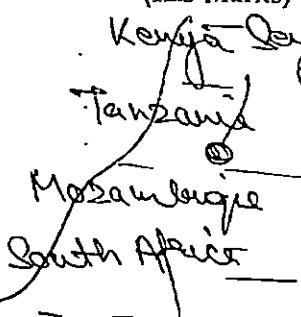 Kenya
Tanzania
Mozambique
South Africa